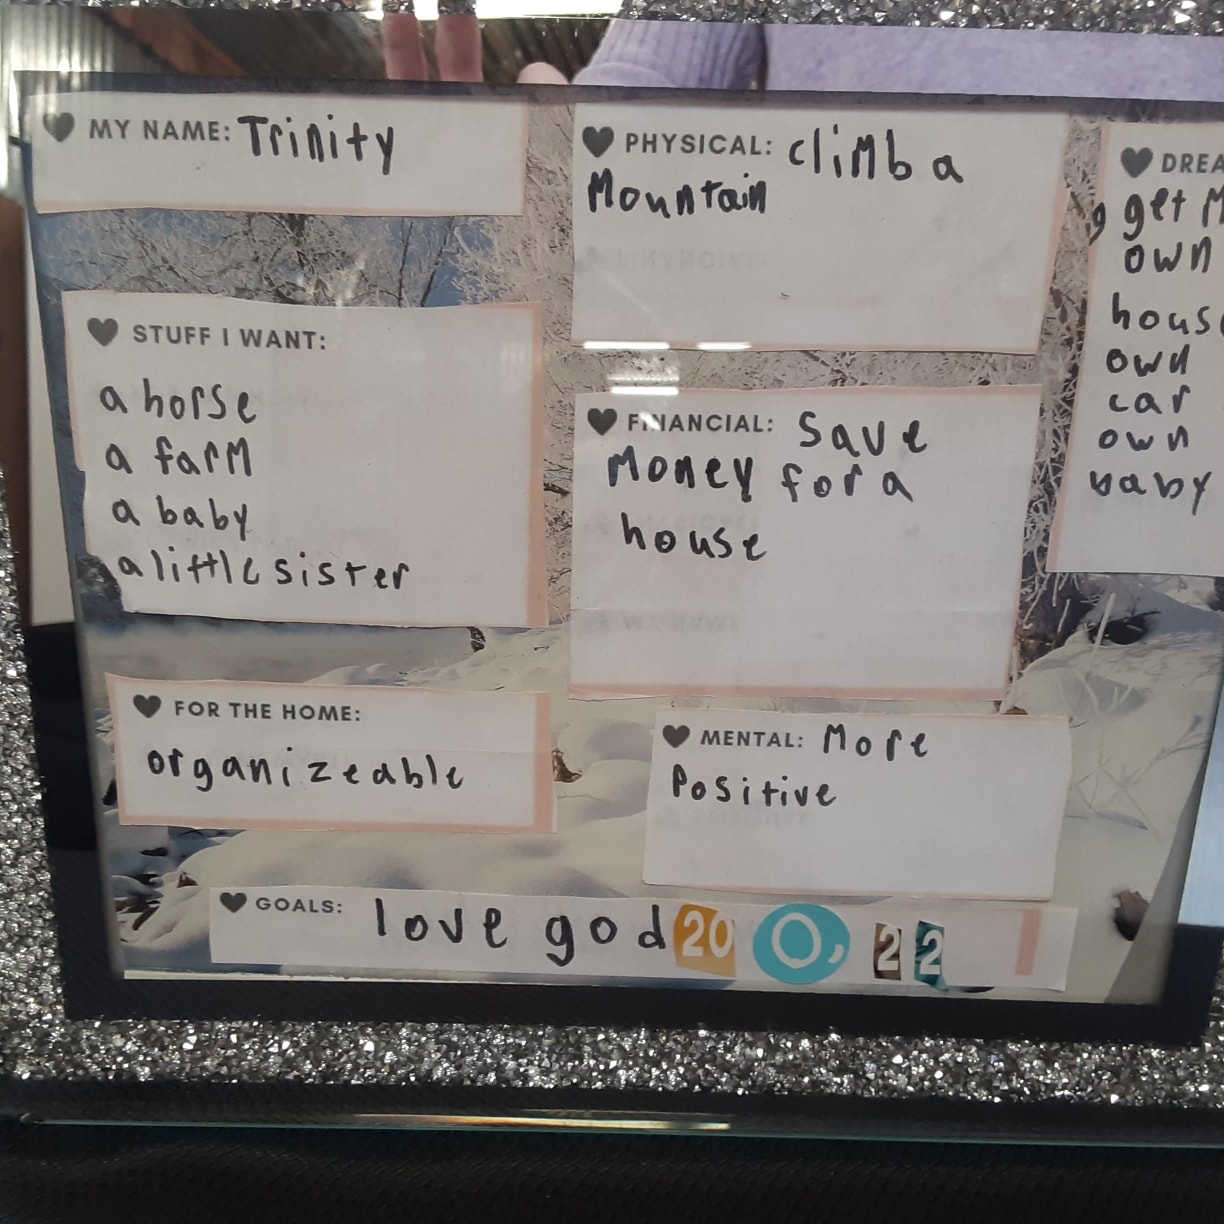 MY NAME: Trinity
STUFF I WANT:
a horse
a farm
a baby
a little sister
FOR THE HOME:
organizeable
PHYSICAL: climb a
Mountain
FINANCIAL: Save
Money for a
house
MENTAL: More
Positive
get
own
own
car
own
baby
GOALS: love god 20 0, 22